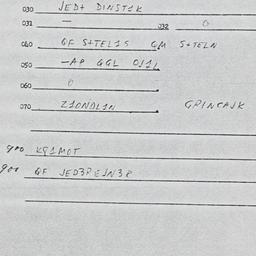 030 JED+ DINST1K
031 — 032 0
040 QF S+TEL1S GM S+TELN
050 —AP GGL OJ1L
060 0
070 Z10NDL1N GPINCAJK
900 KQ1MOT
900 QF JED3REJN38